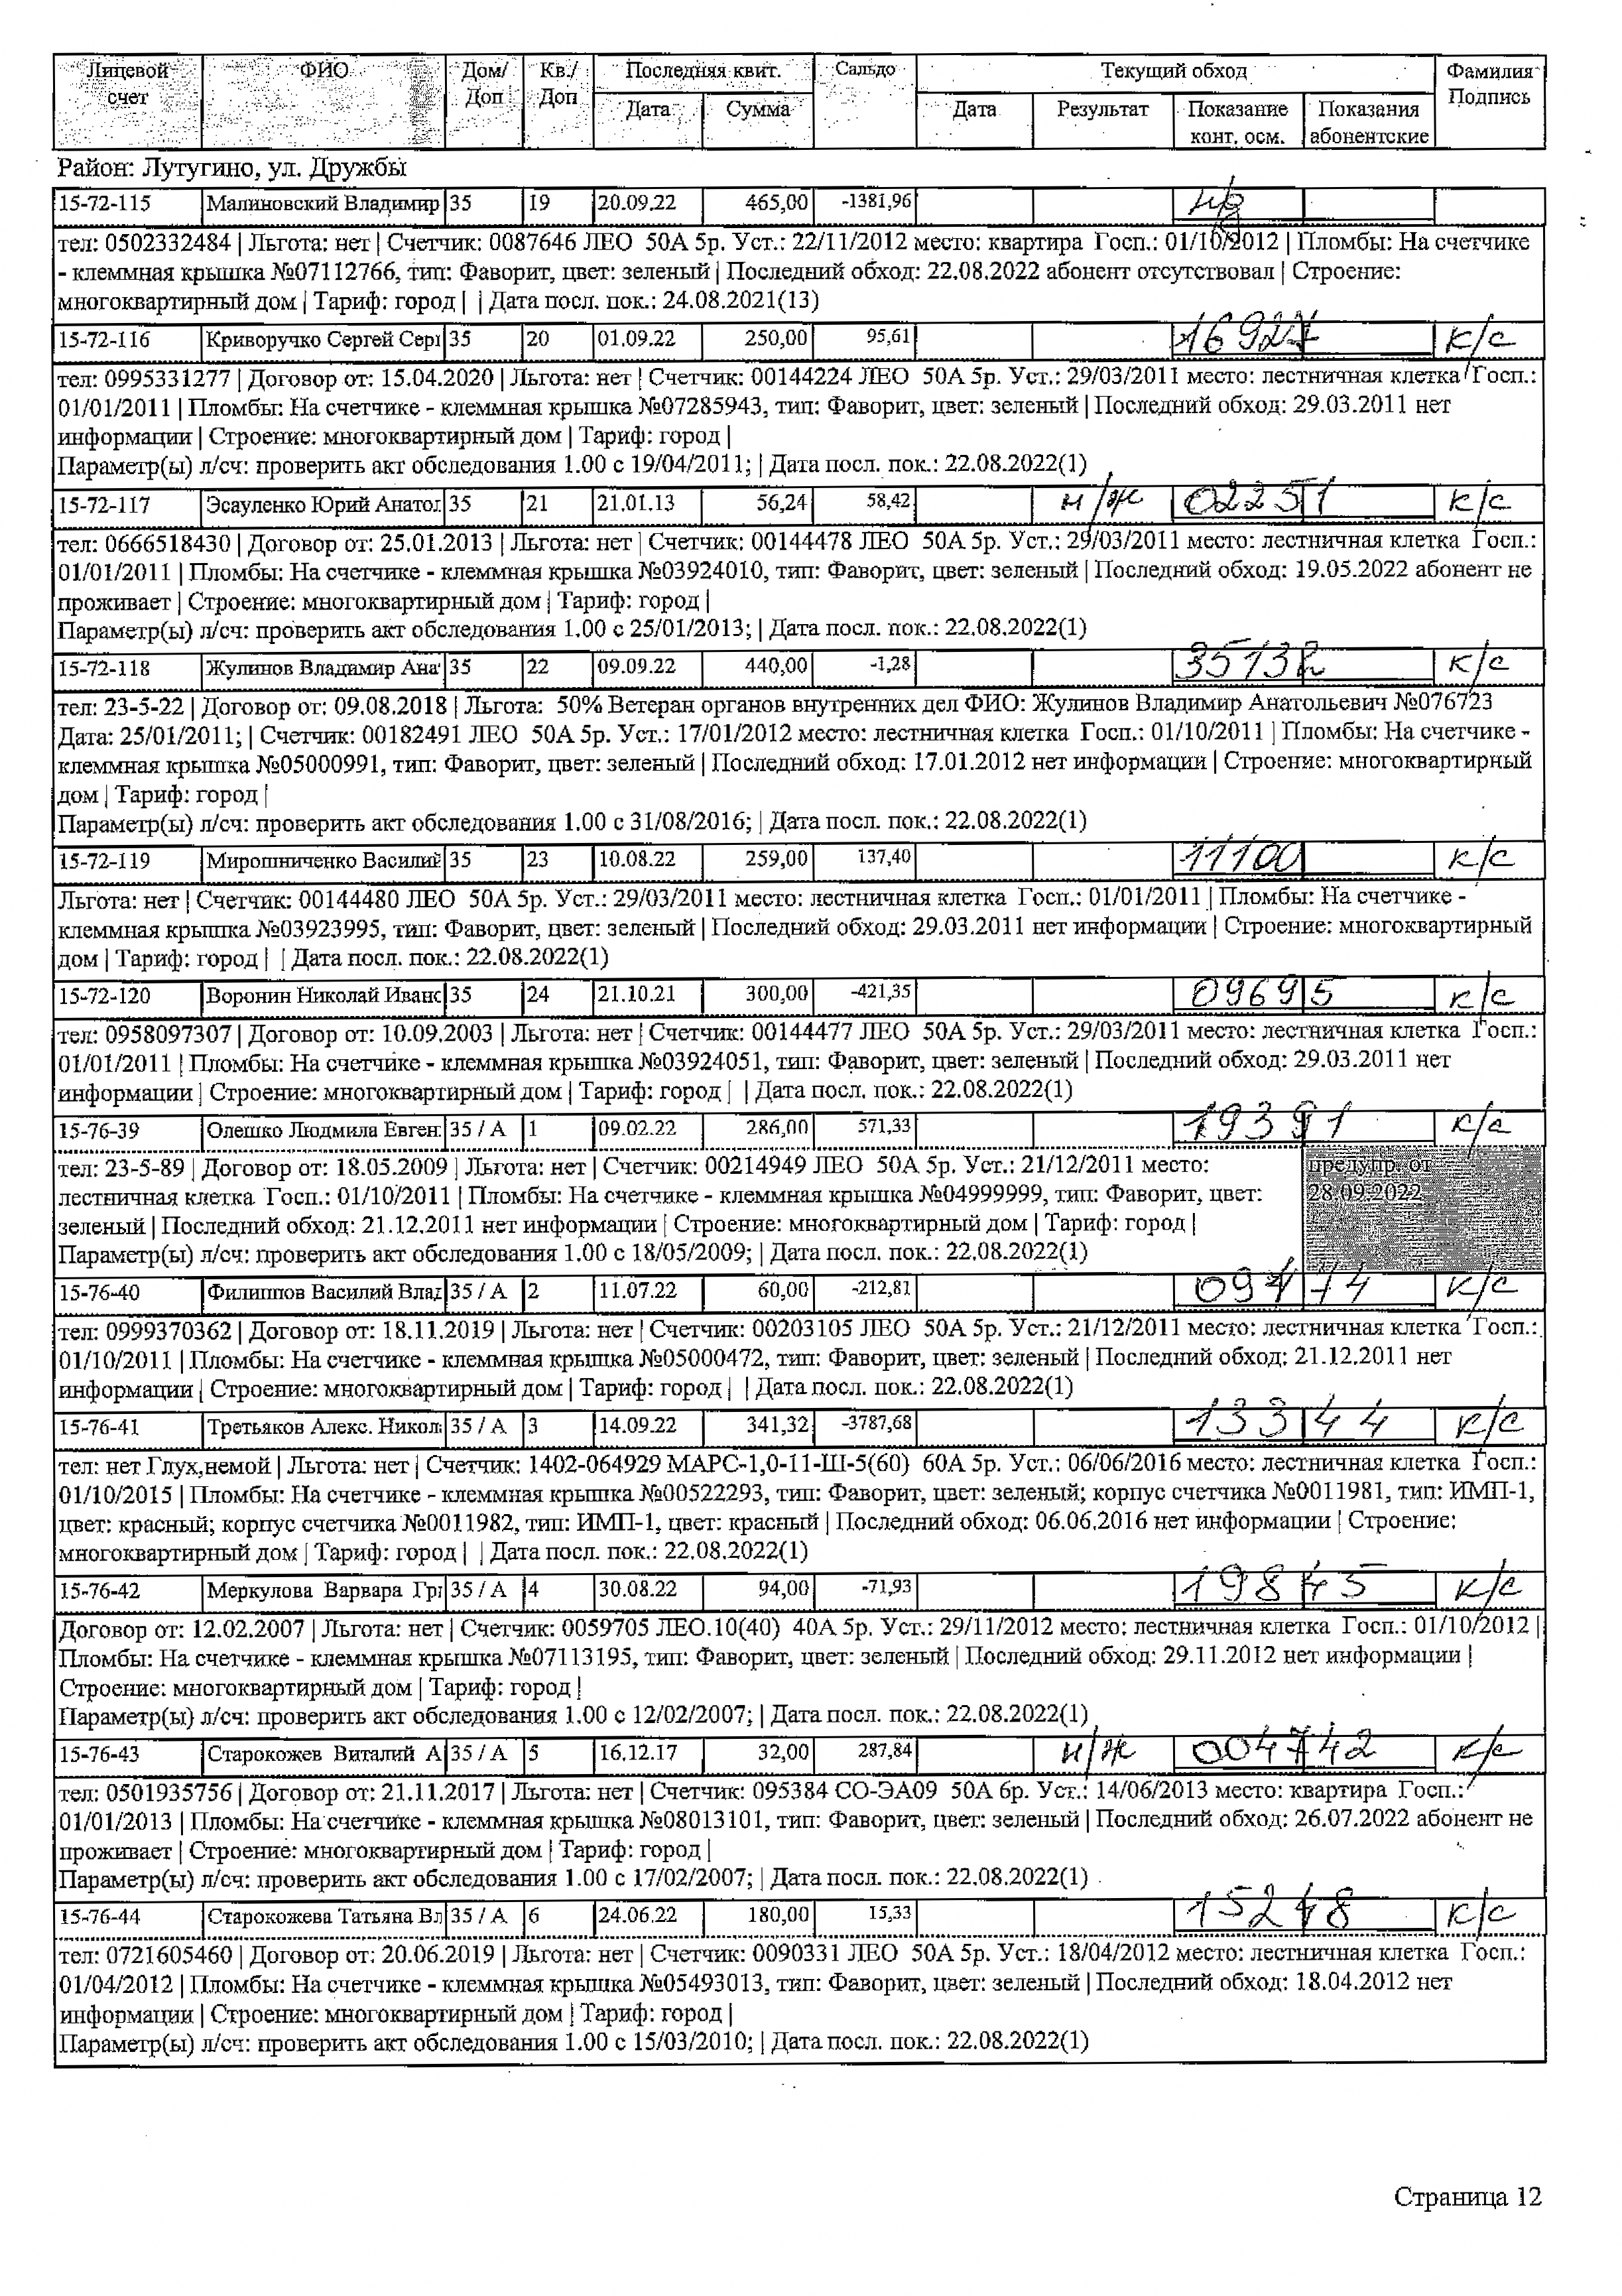 Лицевой счет ФИО Дом/ Доп Кв./ Доп Последняя квит. Сальдо Текущий обход Фамилия Подпись
Дата Сумма Дата Результат Показание конт. осм. Показания абонентские
Район: Лутугино, ул. Дружбы
15-72-115 Малиновский Владимир 35 19 20.09.22 465,00 -1381,96
тел: 0502332484 | Льгота: нет | Счетчик: 0087646 ЛЕО 50А 5р. Уст.: 22/11/2012 место: квартира Госп.: 01/10/2012 | Пломбы: На счетчике
- клеммная крышка №07112766, тип: Фаворит, цвет: зеленый | Последний обход: 22.08.2022 абонент отсутствовал | Строение:
многоквартирный дом | Тариф: город | | Дата посл. пок.: 24.08.2021(13)
15-72-116 Криворучко Сергей Серг 35 20 01.09.22 250,00 95,61 16927 к/с
тел: 0995331277 | Договор от: 15.04.2020 | Льгота: нет | Счетчик: 00144224 ЛЕО 50А 5р. Уст.: 29/03/2011 место: лестничная клетка Госп.:
01/01/2011 | Пломбы: На счетчике - клеммная крышка №07285943, тип: Фаворит, цвет: зеленый | Последний обход: 29.03.2011 нет
информации | Строение: многоквартирный дом | Тариф: город |
Параметр(ы) л/сч: проверить акт обследования 1.00 с 19/04/2011; | Дата посл. пок.: 22.08.2022(1)
15-72-117 Эсауленко Юрий Анатол 35 21 21.01.13 56,24 58,42 н/ж 02251 к/с
тел: 0666518430 | Договор от: 25.01.2013 | Льгота: нет | Счетчик: 00144478 ЛЕО 50А 5р. Уст.: 29/03/2011 место: лестничная клетка Госп.:
01/01/2011 | Пломбы: На счетчике - клеммная крышка №03924010, тип: Фаворит, цвет: зеленый | Последний обход: 19.05.2022 абонент не
проживает | Строение: многоквартирный дом | Тариф: город |
Параметр(ы) л/сч: проверить акт обследования 1.00 с 25/01/2013; | Дата посл. пок.: 22.08.2022(1)
15-72-118 Жулинов Владимир Ана 35 22 09.09.22 440,00 -1,28 35132 к/с
тел: 23-5-22 | Договор от: 09.08.2018 | Льгота: 50% Ветеран органов внутренних дел ФИО: Жулинов Владимир Анатольевич №076723
Дата: 25/01/2011; | Счетчик: 00182491 ЛЕО 50А 5р. Уст.: 17/01/2012 место: лестничная клетка Госп.: 01/10/2011 | Пломбы: На счетчике -
клеммная крышка №05000991, тип: Фаворит, цвет: зеленый | Последний обход: 17.01.2012 нет информации | Строение: многоквартирный
дом | Тариф: город |
Параметр(ы) л/сч: проверить акт обследования 1.00 с 31/08/2016; | Дата посл. пок.: 22.08.2022(1)
15-72-119 Мирошниченко Василий 35 23 10.08.22 259,00 137,40 11100 к/с
Льгота: нет | Счетчик: 00144480 ЛЕО 50А 5р. Уст.: 29/03/2011 место: лестничная клетка Госп.: 01/01/2011 | Пломбы: На счетчике -
клеммная крышка №03923995, тип: Фаворит, цвет: зеленый | Последний обход: 29.03.2011 нет информации | Строение: многоквартирный
дом | Тариф: город | | Дата посл. пок.: 22.08.2022(1)
15-72-120 Воронин Николай Иванс 35 24 21.10.21 300,00 -421,35 09695 к/с
тел: 0958097307 | Договор от: 10.09.2003 | Льгота: нет | Счетчик: 00144477 ЛЕО 50А 5р. Уст.: 29/03/2011 место: лестничная клетка Госп.:
01/01/2011 | Пломбы: На счетчике - клеммная крышка №03924051, тип: Фаворит, цвет: зеленый | Последний обход: 29.03.2011 нет
информации | Строение: многоквартирный дом | Тариф: город | | Дата посл. пок.: 22.08.2022(1)
15-76-39 Олешко Людмила Евген 35 / А 1 09.02.22 286,00 571,33 19391 к/с
тел: 23-5-89 | Договор от: 18.05.2009 | Льгота: нет | Счетчик: 00214949 ЛЕО 50А 5р. Уст.: 21/12/2011 место: предупр. от
лестничная клетка Госп.: 01/10/2011 | Пломбы: На счетчике - клеммная крышка №04999999, тип: Фаворит, цвет: 28.09.2022
зеленый | Последний обход: 21.12.2011 нет информации | Строение: многоквартирный дом | Тариф: город |
Параметр(ы) л/сч: проверить акт обследования 1.00 с 18/05/2009; | Дата посл. пок.: 22.08.2022(1)
15-76-40 Филиппов Василий Влад 35 / А 2 11.07.22 60,00 -212,81 к/с
тел: 0999370362 | Договор от: 18.11.2019 | Льгота: нет | Счетчик: 00203105 ЛЕО 50А 5р. Уст.: 21/12/2011 место: лестничная клетка Госп.:
01/10/2011 | Пломбы: На счетчике - клеммная крышка №05000472, тип: Фаворит, цвет: зеленый | Последний обход: 21.12.2011 нет
информации | Строение: многоквартирный дом | Тариф: город | | Дата посл. пок.: 22.08.2022(1)
15-76-41 Третьяков Алекс. Никол 35 / А 3 14.09.22 341,32 -3787,68 13344 к/с
тел: нет Глух,немой | Льгота: нет | Счетчик: 1402-064929 МАРС-1,0-11-Ш-5(60) 60А 5р. Уст.: 06/06/2016 место: лестничная клетка Госп.:
01/10/2015 | Пломбы: На счетчике - клеммная крышка №00522293, тип: Фаворит, цвет: зеленый; корпус счетчика №0011981, тип: ИМП-1,
цвет: красный; корпус счетчика №0011982, тип: ИМП-1, цвет: красный | Последний обход: 06.06.2016 нет информации | Строение:
многоквартирный дом | Тариф: город | | Дата посл. пок.: 22.08.2022(1)
15-76-42 Меркулова Варвара Гри 35 / А 4 30.08.22 94,00 -71,93 19845 к/с
Договор от: 12.02.2007 | Льгота: нет | Счетчик: 0059705 ЛЕО.10(40) 40А 5р. Уст.: 29/11/2012 место: лестничная клетка Госп.: 01/10/2012 |
Пломбы: На счетчике - клеммная крышка №07113195, тип: Фаворит, цвет: зеленый | Последний обход: 29.11.2012 нет информации |
Строение: многоквартирный дом | Тариф: город |
Параметр(ы) л/сч: проверить акт обследования 1.00 с 12/02/2007; | Дата посл. пок.: 22.08.2022(1)
15-76-43 Старокожев Виталий А 35 / А 5 16.12.17 32,00 287,84 н/ж 004742 к/с
тел: 0501935756 | Договор от: 21.11.2017 | Льгота: нет | Счетчик: 095384 СО-ЭА09 50А 6р. Уст.: 14/06/2013 место: квартира Госп.:
01/01/2013 | Пломбы: На счетчике - клеммная крышка №08013101, тип: Фаворит, цвет: зеленый | Последний обход: 26.07.2022 абонент не
проживает | Строение: многоквартирный дом | Тариф: город |
Параметр(ы) л/сч: проверить акт обследования 1.00 с 17/02/2007; | Дата посл. пок.: 22.08.2022(1)
15-76-44 Старокожева Татьяна Вл 35 / А 6 24.06.22 180,00 15,33 15248 к/с
тел: 0721605460 | Договор от: 20.06.2019 | Льгота: нет | Счетчик: 0090331 ЛЕО 50А 5р. Уст.: 18/04/2012 место: лестничная клетка Госп.:
01/04/2012 | Пломбы: На счетчике - клеммная крышка №05493013, тип: Фаворит, цвет: зеленый | Последний обход: 18.04.2012 нет
информации | Строение: многоквартирный дом | Тариф: город |
Параметр(ы) л/сч: проверить акт обследования 1.00 с 15/03/2010; | Дата посл. пок.: 22.08.2022(1)
Страница 12